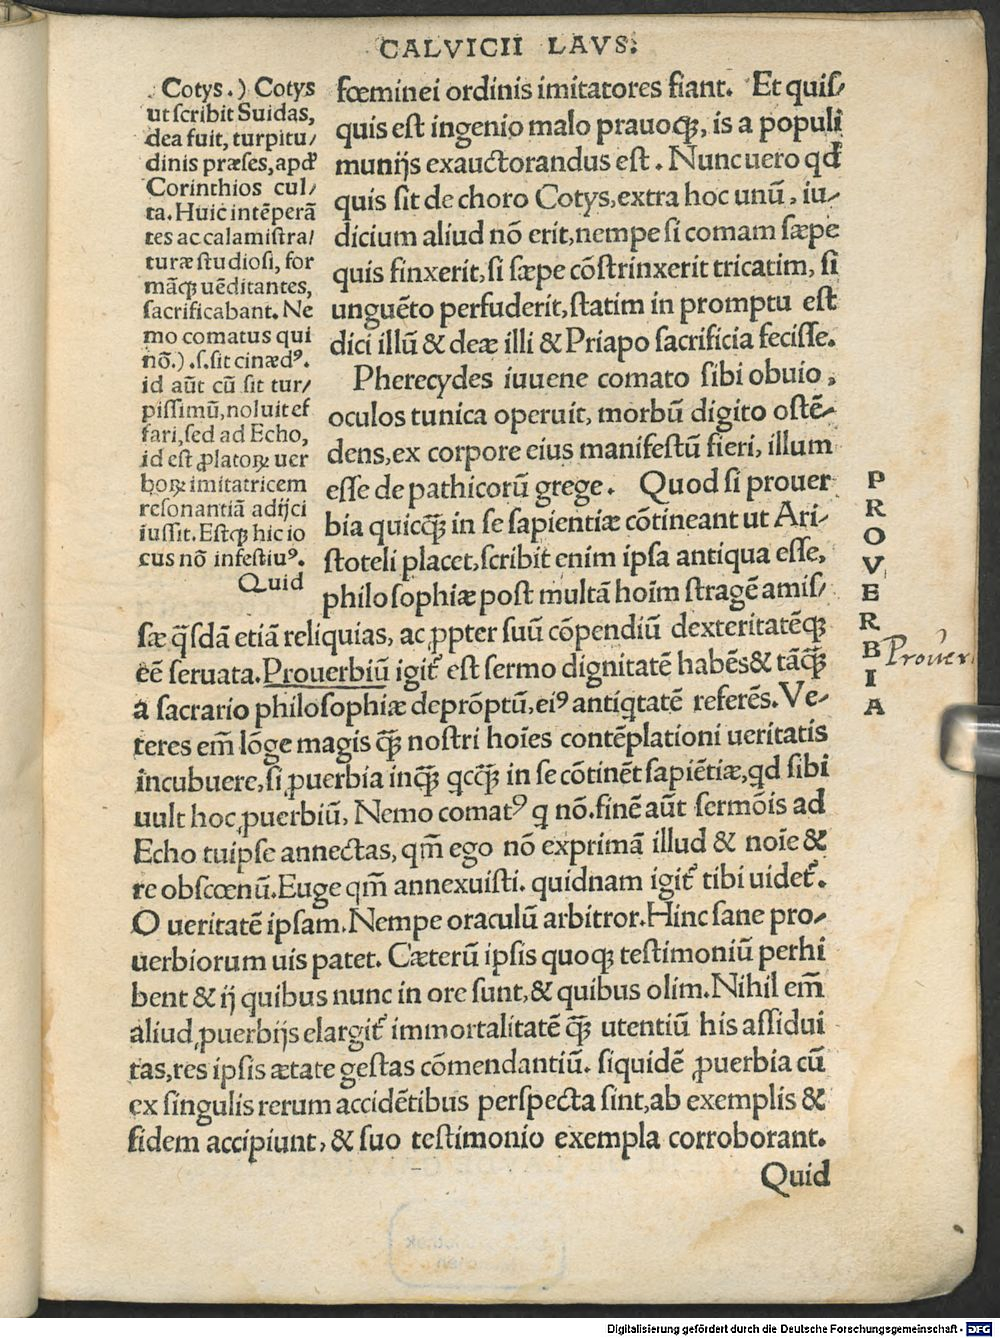 CALVICII LAVS.
Cotys.) Cotys
ut scribit Suidas,
dea fuit, turpitu/
dinis præses, apd'
Corinthios cul/
ta. Huic intēperā
tes ac calamistra/
turæ studiosi, for
māꝗ uēditantes,
sacrificabant. Ne
mo comatus qui
nō.) .s. sit cinædꝰ.
id aūt cū sit tur/
pissimū, noluit ef
fari, sed ad Echo,
id est ꝓlatoꝝ uer
boꝝ imitatricem
resonantiā adijci
iussit. Estꝗ hic io
cus nō infestiuꝰ.
Quid
fœminei ordinis imitatores fiant. Et quis/
quis est ingenio malo prauoꝗ, is a populi
munijs exauctorandus est. Nunc uero qd
quis sit de choro Cotys, extra hoc unū, iu/
dicium aliud nō erit, nempe si comam sæpe
quis finxerit, si sæpe cōstrinxerit tricatim, si
unguēto perfuderit, statim in promptu est
dici illū & deæ illi & Priapo sacrificia fecisse.
Pherecydes iuuene comato sibi obuio,
oculos tunica operuit, morbū digito ostē/
dens, ex corpore eius manifestū fieri, illum
esse de pathicorū grege. Quod si prouer
bia quicq̃ in se sapientiæ cōtineant ut Ari/
stoteli placet, scribit enim ipsa antiqua esse,
philosophiæ post multā hoīm stragē amis/
sæ q̃sdā etiā reliquias, ac ꝓpter suū cōpendiū dexteritatēꝗ
eē seruata. Prouerbiū igit̃ est sermo dignitatē habēs & tāq̃
a sacrario philosophiæ deprōptū, eiꝰ antiqtatē referēs. Ve/
teres em̃ lōge magis q̃ nostri hoīes contēplationi ueritatis
incubuere, si ꝓuerbia inq̃ qcq̃ in se cōtinēt sapiētiæ, qd sibi
uult hoc ꝓuerbiū, Nemo comatꝰ q nō. finē aūt sermōis ad
Echo tuipse annectas, qm̃ ego nō exprimā illud & noīe &
re obscœnū. Euge qm̃ annexuisti. quidnam igit̃ tibi uidet̃.
O ueritatē ipsam. Nempe oraculū arbitror. Hinc sane pro/
uerbiorum uis patet. Cæterū ipsis quoꝗ testimoniū perhi
bent & ij quibus nunc in ore sunt, & quibus olim. Nihil em̃
aliud ꝓuerbijs elargit̃ immortalitatē q̃ utentiū his assidui
tas, res ipsis ætate gestas cōmendantiū. siquidē ꝓuerbia cū
ex singulis rerum accidētibus perspecta sint, ab exemplis &
fidem accipiunt, & suo testimonio exempla corroborant.
Quid
PROVERBIA
Prouer
Digitalisierung gefördert durch die Deutsche Forschungsgemeinschaft - DFG